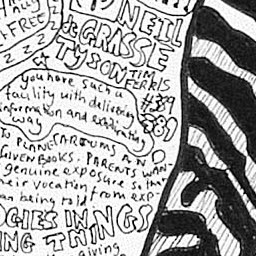 FREE
ZZZZ
NEIL
de GRASSE
TYSON
TIM
FERRIS
#39
381
You have such a
facility with delivering
information and
way
TO PLANETARIUMS AND
GIVEN BOOKS. PARENTS WAN-
genuine exposure so th
heir vocation from exp-
an being told
OGIES IN NGS
ING THIN
giving